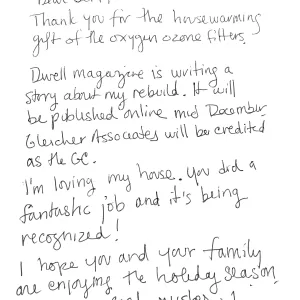 Thank you for the housewarming
gift of the oxygen ozone filters.
Dwell magazine is writing a
story about my rebuild. It will
be published online mid December.
Gleicher Associates will be credited
as the GC.
I'm loving my house. You did a
fantastic job and it's being
recognized!
I hope you and your family
are enjoying the holiday season